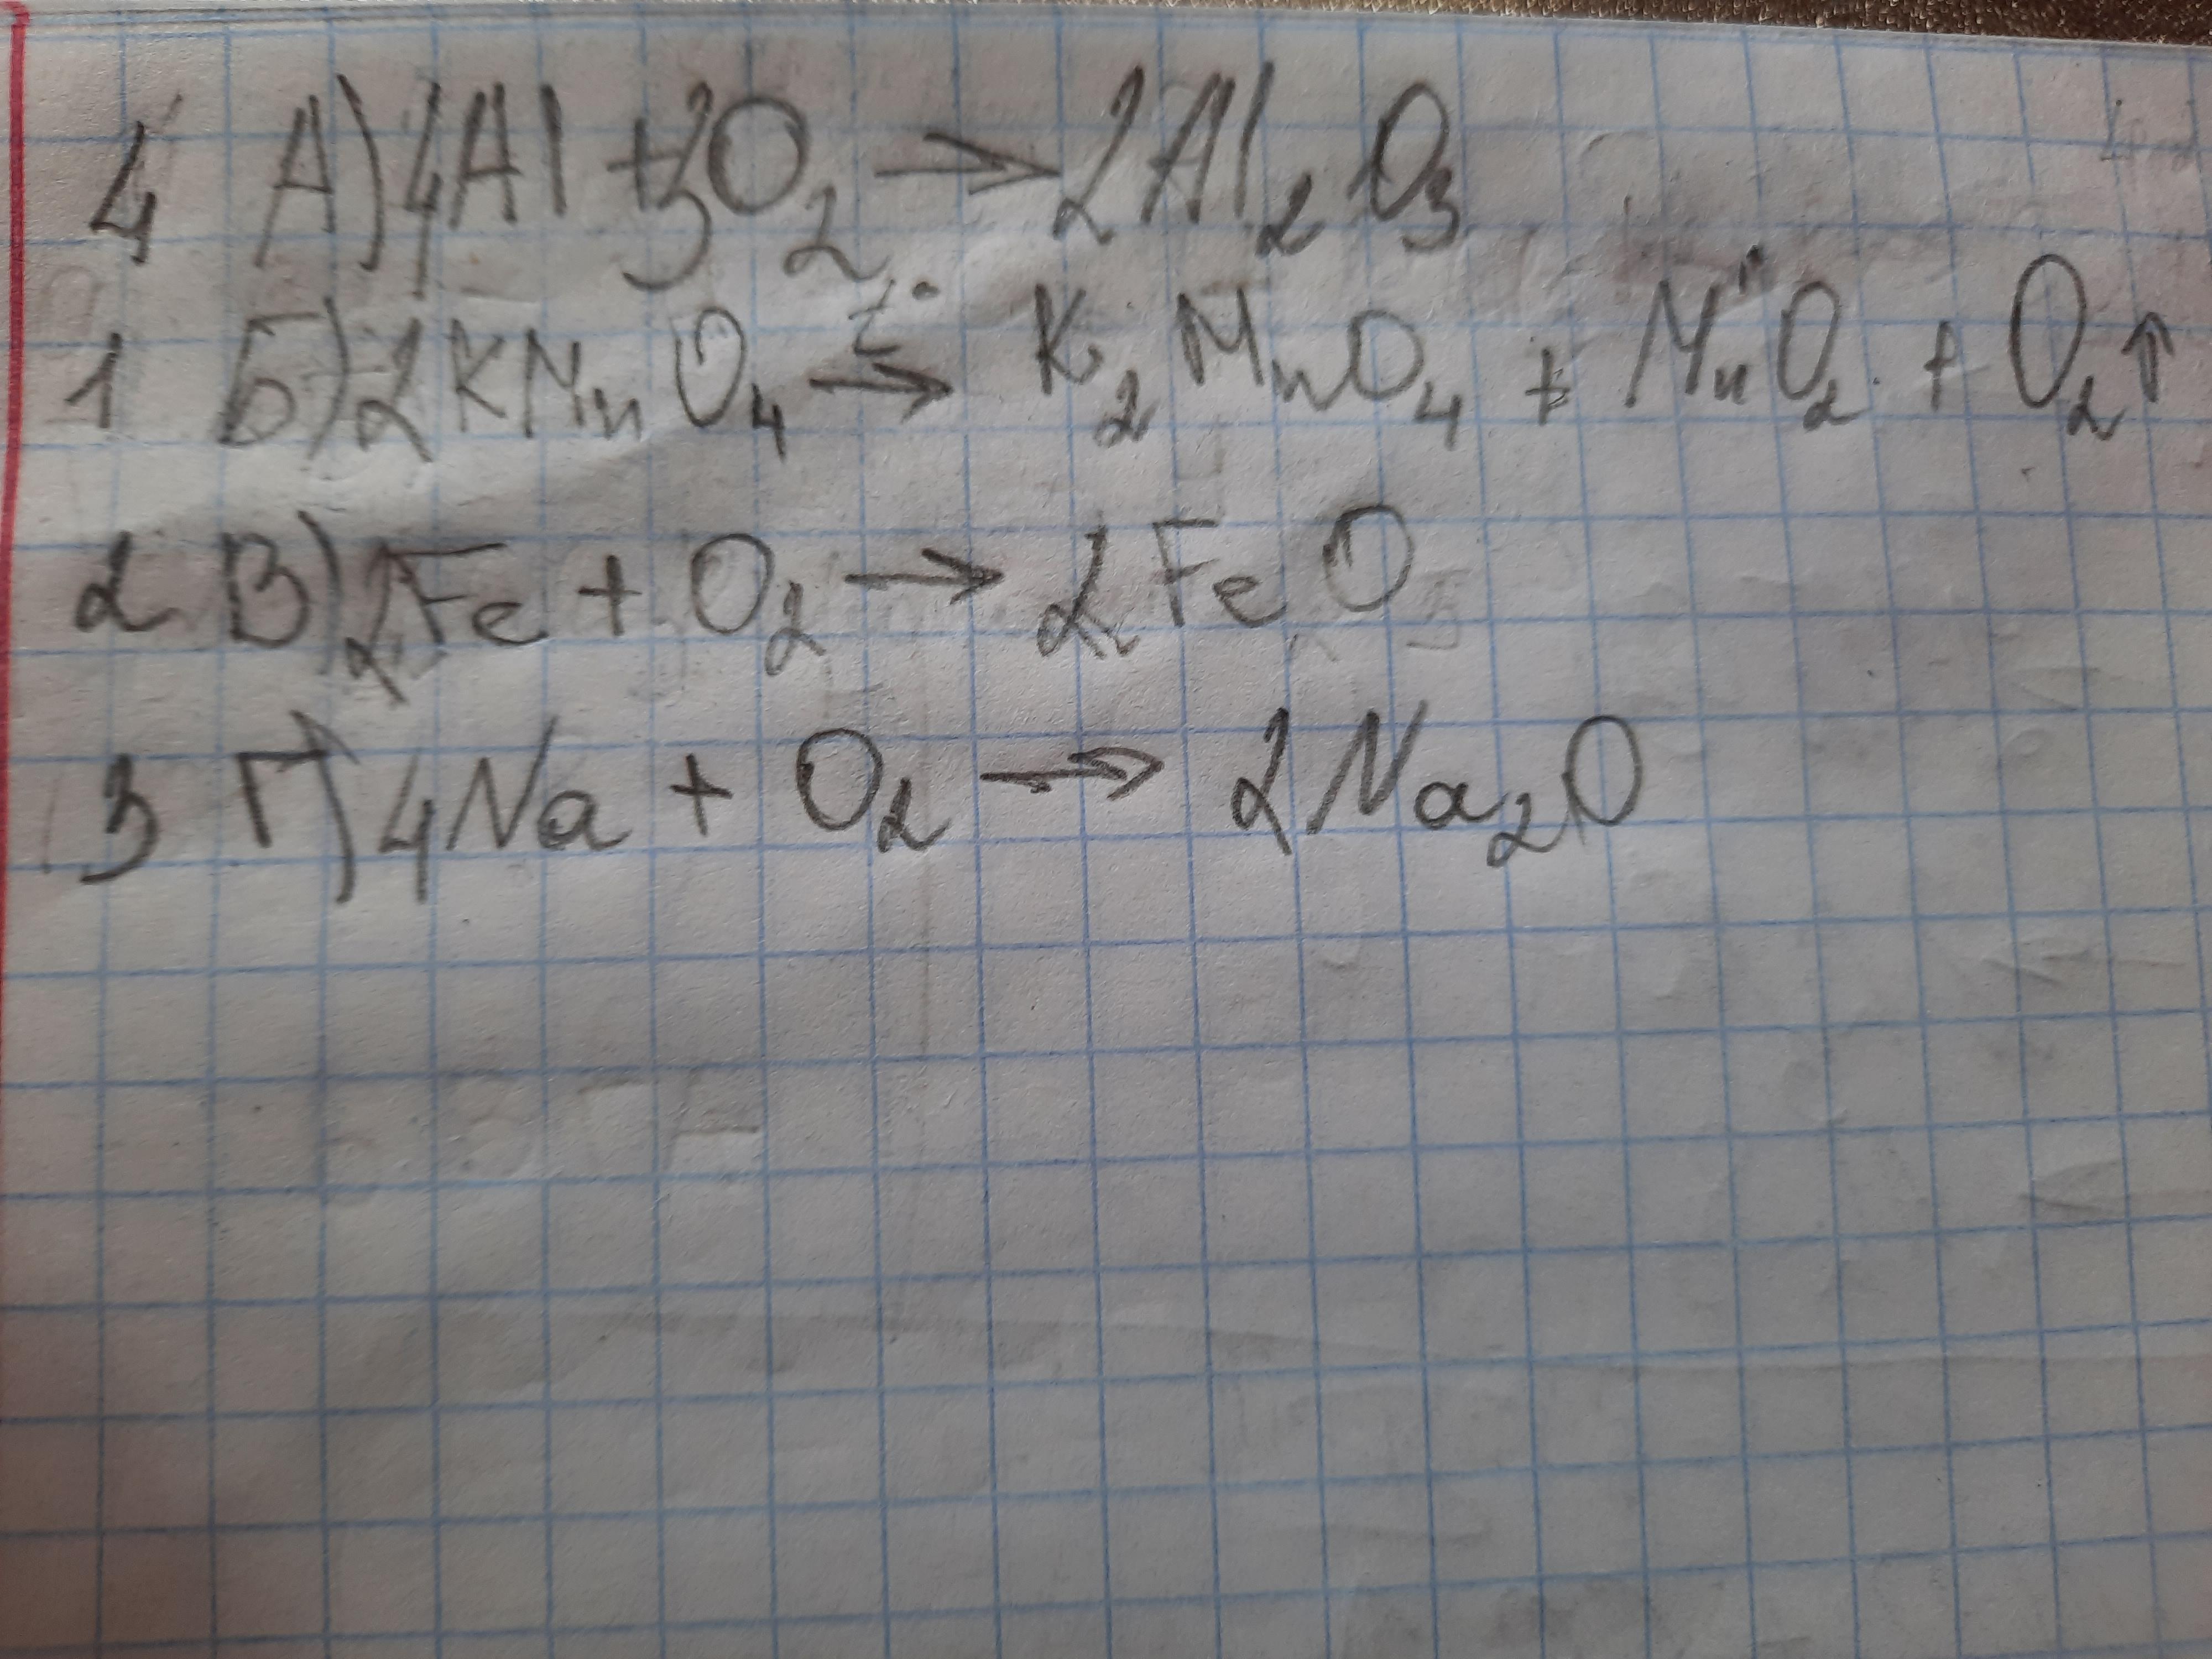 4 А) 4Al + 3O₂ → 2Al₂O₃
1 Б) 2KMnO₄ t° → K₂MnO₄ + MnO₂ + O₂↑
2 В) 2Fe + O₂ → 2FeO
3 Г) 4Na + O₂ → 2Na₂O